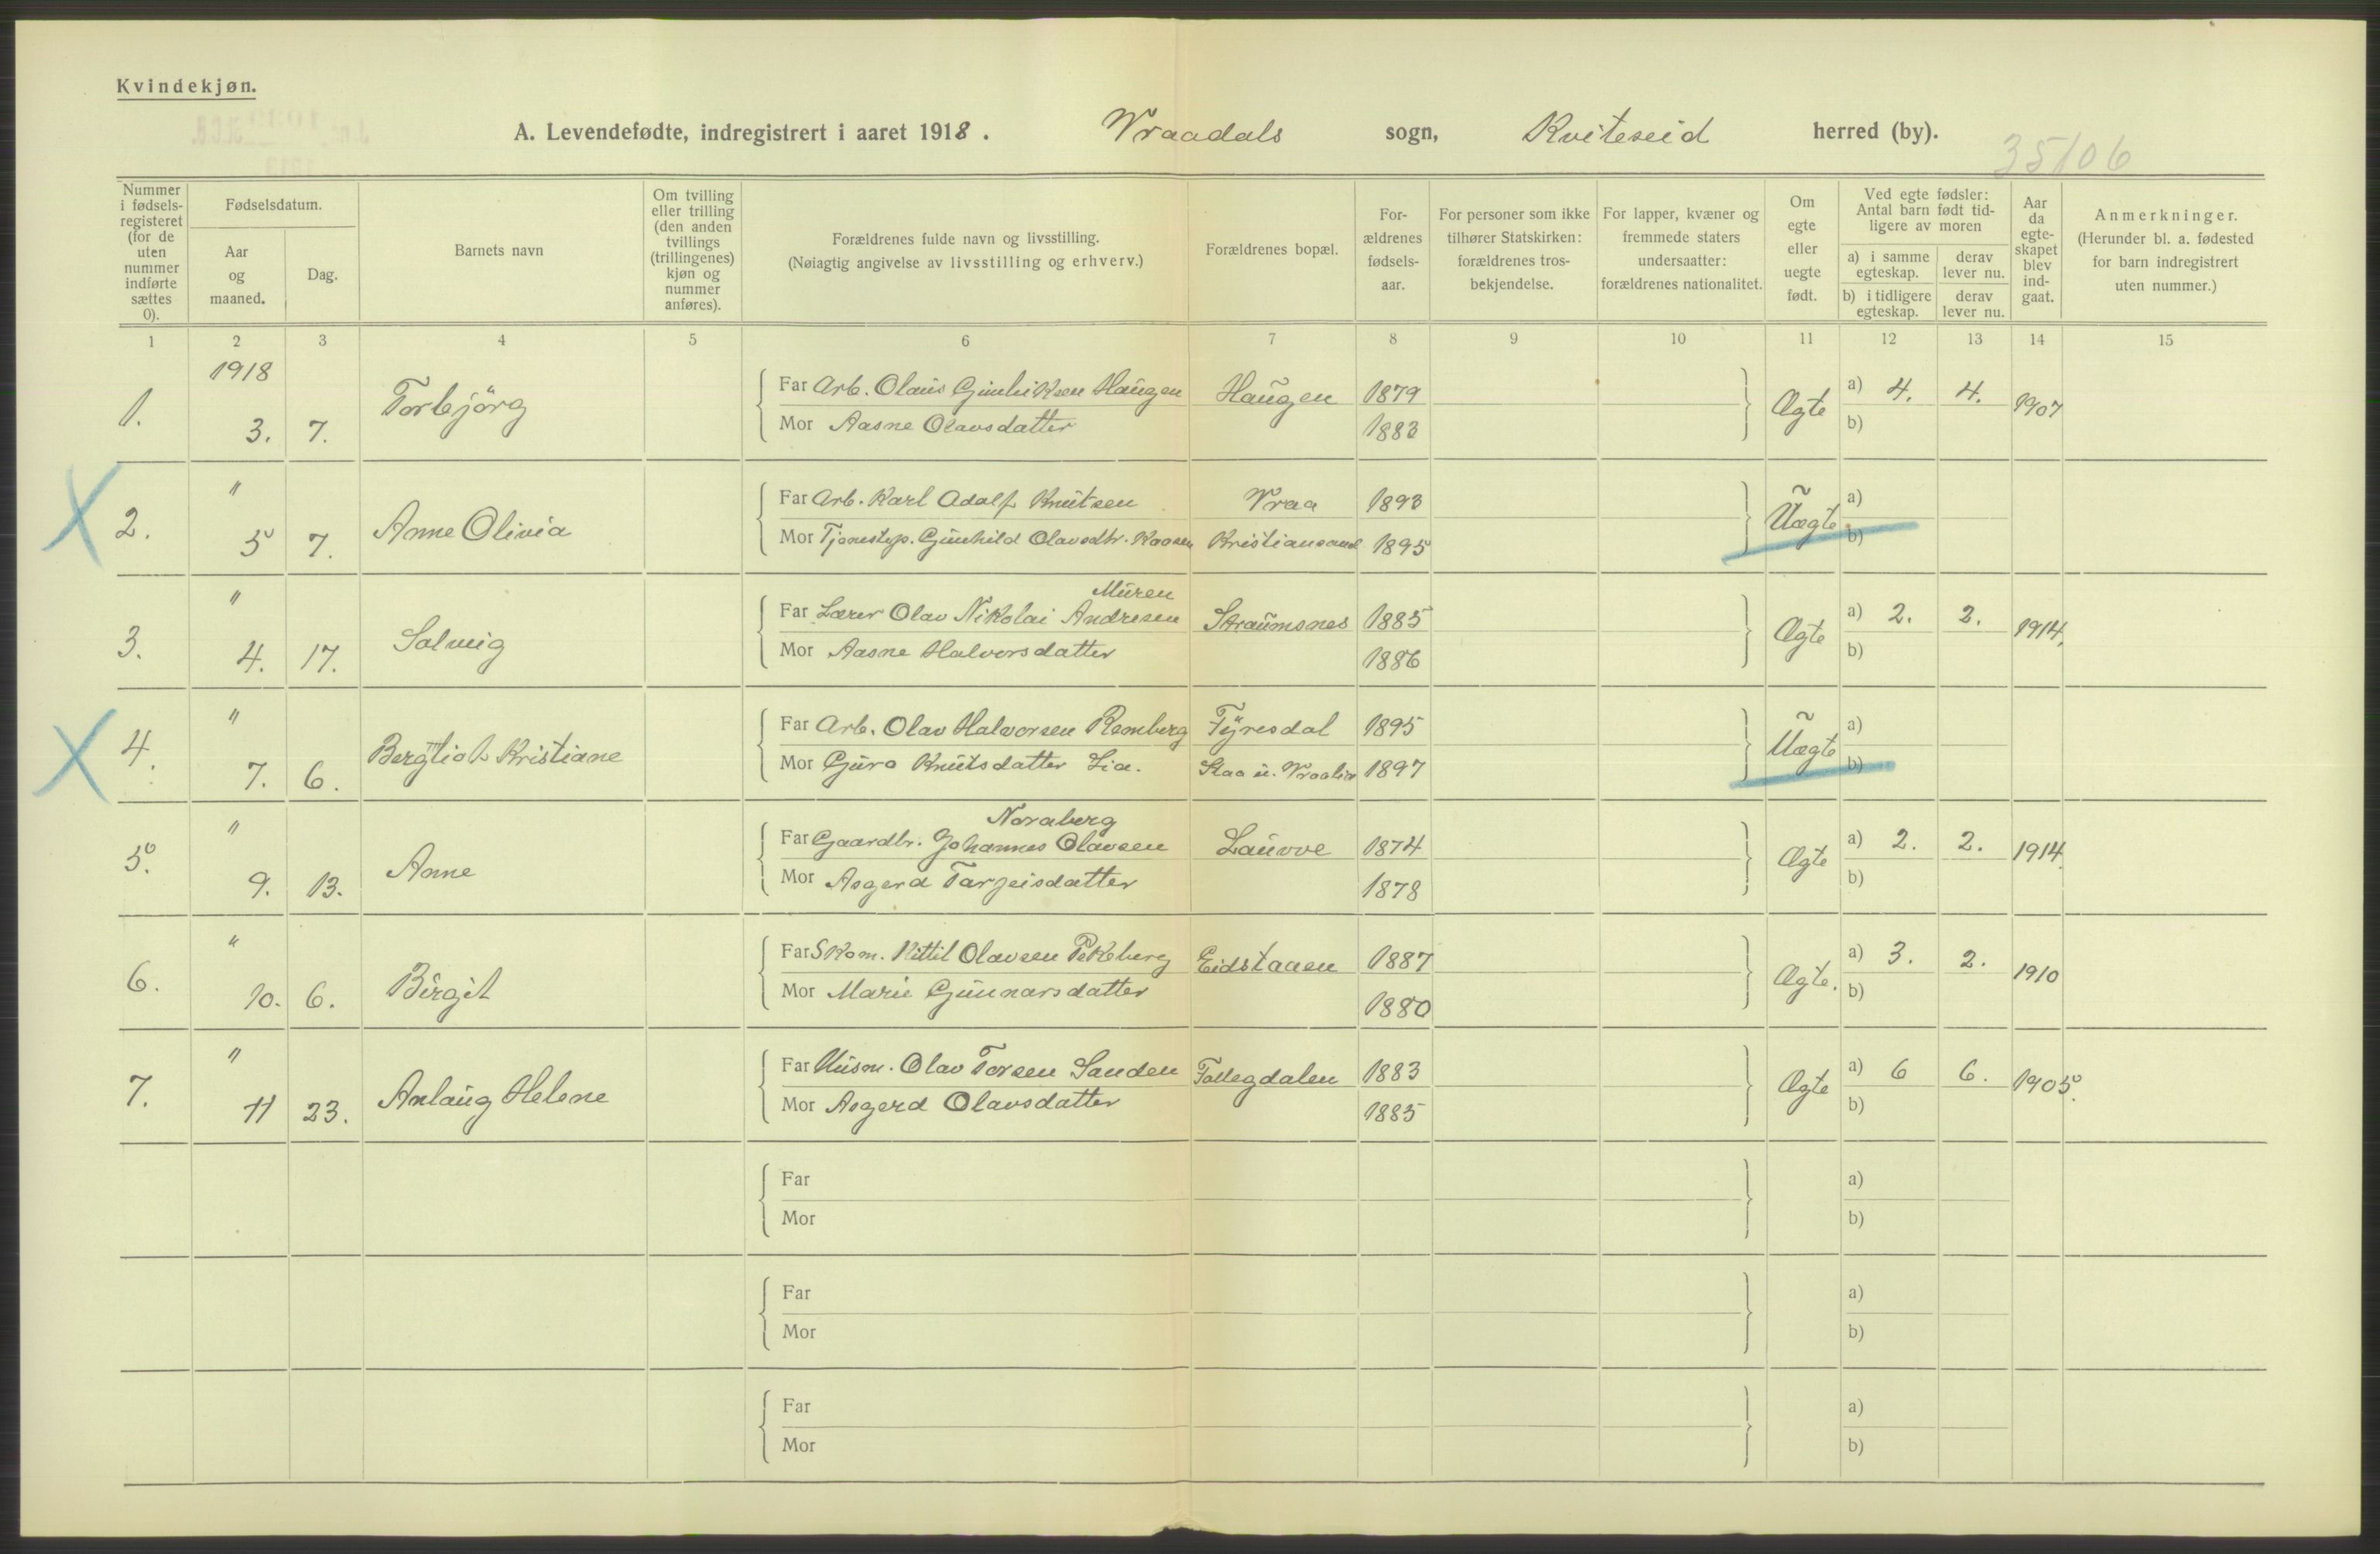 Kvindekjøn.
A. Levendefødte, indregistrert i aaret 1918. Vraadals sogn, Kviteseid herred (by).
35/06
Nummer i fødsels-registeret (for de uten nummer indførte sættes 0).
Fødselsdatum.
Aar og maaned.
Dag.
Barnets navn
Om tvilling eller trilling (den anden tvillings (trillingenes) kjøn og nummer anføres).
Forældrenes fulde navn og livsstilling.
(Nøiagtig angivelse av livsstilling og erhverv.)
Forældrenes bopæl.
For-ældrenes fødsels-aar.
For personer som ikke tilhører Statskirken: forældrenes tros-bekjendelse.
For lapper, kvæner og fremmede staters undersaatter: forældrenes nationalitet.
Om egte eller uegte født.
Ved egte fødsler: Antal barn født tid-ligere av moren
a) i samme egteskap.
derav lever nu.
b) i tidligere egteskap.
derav lever nu.
Aar da egte-skapet blev ind-gaat.
Anmerkninger.
(Herunder bl. a. fødested for barn indregistrert uten nummer.)
1 2 3 4 5 6 7 8 9 10 11 12 13 14 15
1918
1. 3. 7. Torbjörg
Far Arb. Olaus Gunleiksen Haugen Haugen 1879 Ægte a) 4. 4. 1907
Mor Aasne Olavsdatter 1883 b)
X 2. " 5 7. Anne Olivia
Far Arb. Karl Adolf Knutsen Vraa 1893 Uægte a)
Mor Tjenestep. Gunhild Olavsdtr. Kristiansand 1895 b)
3. " 4. 17. Solveig
Muren
Far Lærer Olav Nikolai Andresen Straumsnes 1885 Ægte a) 2. 2. 1914.
Mor Aasne Halvorsdatter 1886 b)
X 4. " 7. 6. Bergliot Kristiane
Far Arb. Olav Halvorsen Remberg Tyresdal 1895 Uægte a)
Mor Guro Knutsdatter Lia. Staa u. Vraalia 1897 b)
5. " 9. 13. Anne
Noraberg
Far Gaardbr. Johannes Olavsen Lauvve 1874 Ægte a) 2. 2. 1914.
Mor Asgerd Targeisdatter 1878 b)
6. " 10. 6. Birgit
Far Skom. Kittil Olavsen Pekeberg Eidstaaen 1887 Ægte. a) 3. 2. 1910
Mor Marie Gunnarsdatter 1880 b)
7. " 11 23. Anlaug Helene
Far Husm. Olav Torsen Sanden Fallegdalen 1883 Ægte a) 6 6. 1905.
Mor Asgerd Olavsdatter 1885 b)
Far a)
Mor b)
Far a)
Mor b)
Far a)
Mor b)